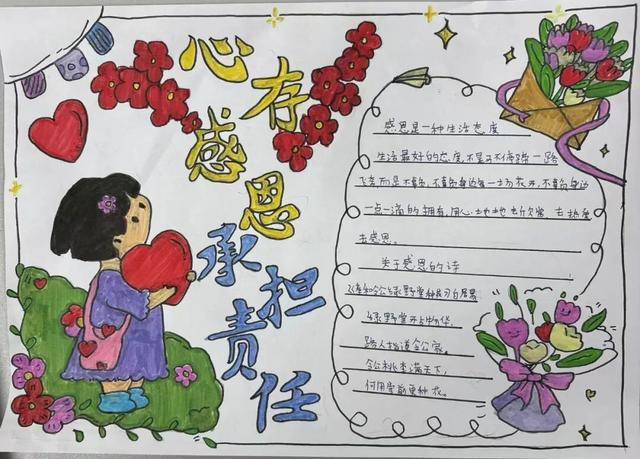 心存
感恩
承担
责任
感恩是一种生活态度
生活最好的态度,不是马不停蹄一路
飞奔而是不辜负,不辜负身边每一场花开,不辜负身边
一点一滴的拥有,用心地地去欣赏 去热爱
去感恩。
关于感恩的诗
令公绿野堂种花
绿野堂开占物华,
路人指道令公家。
令公桃李满天下,
何用堂前更种花。